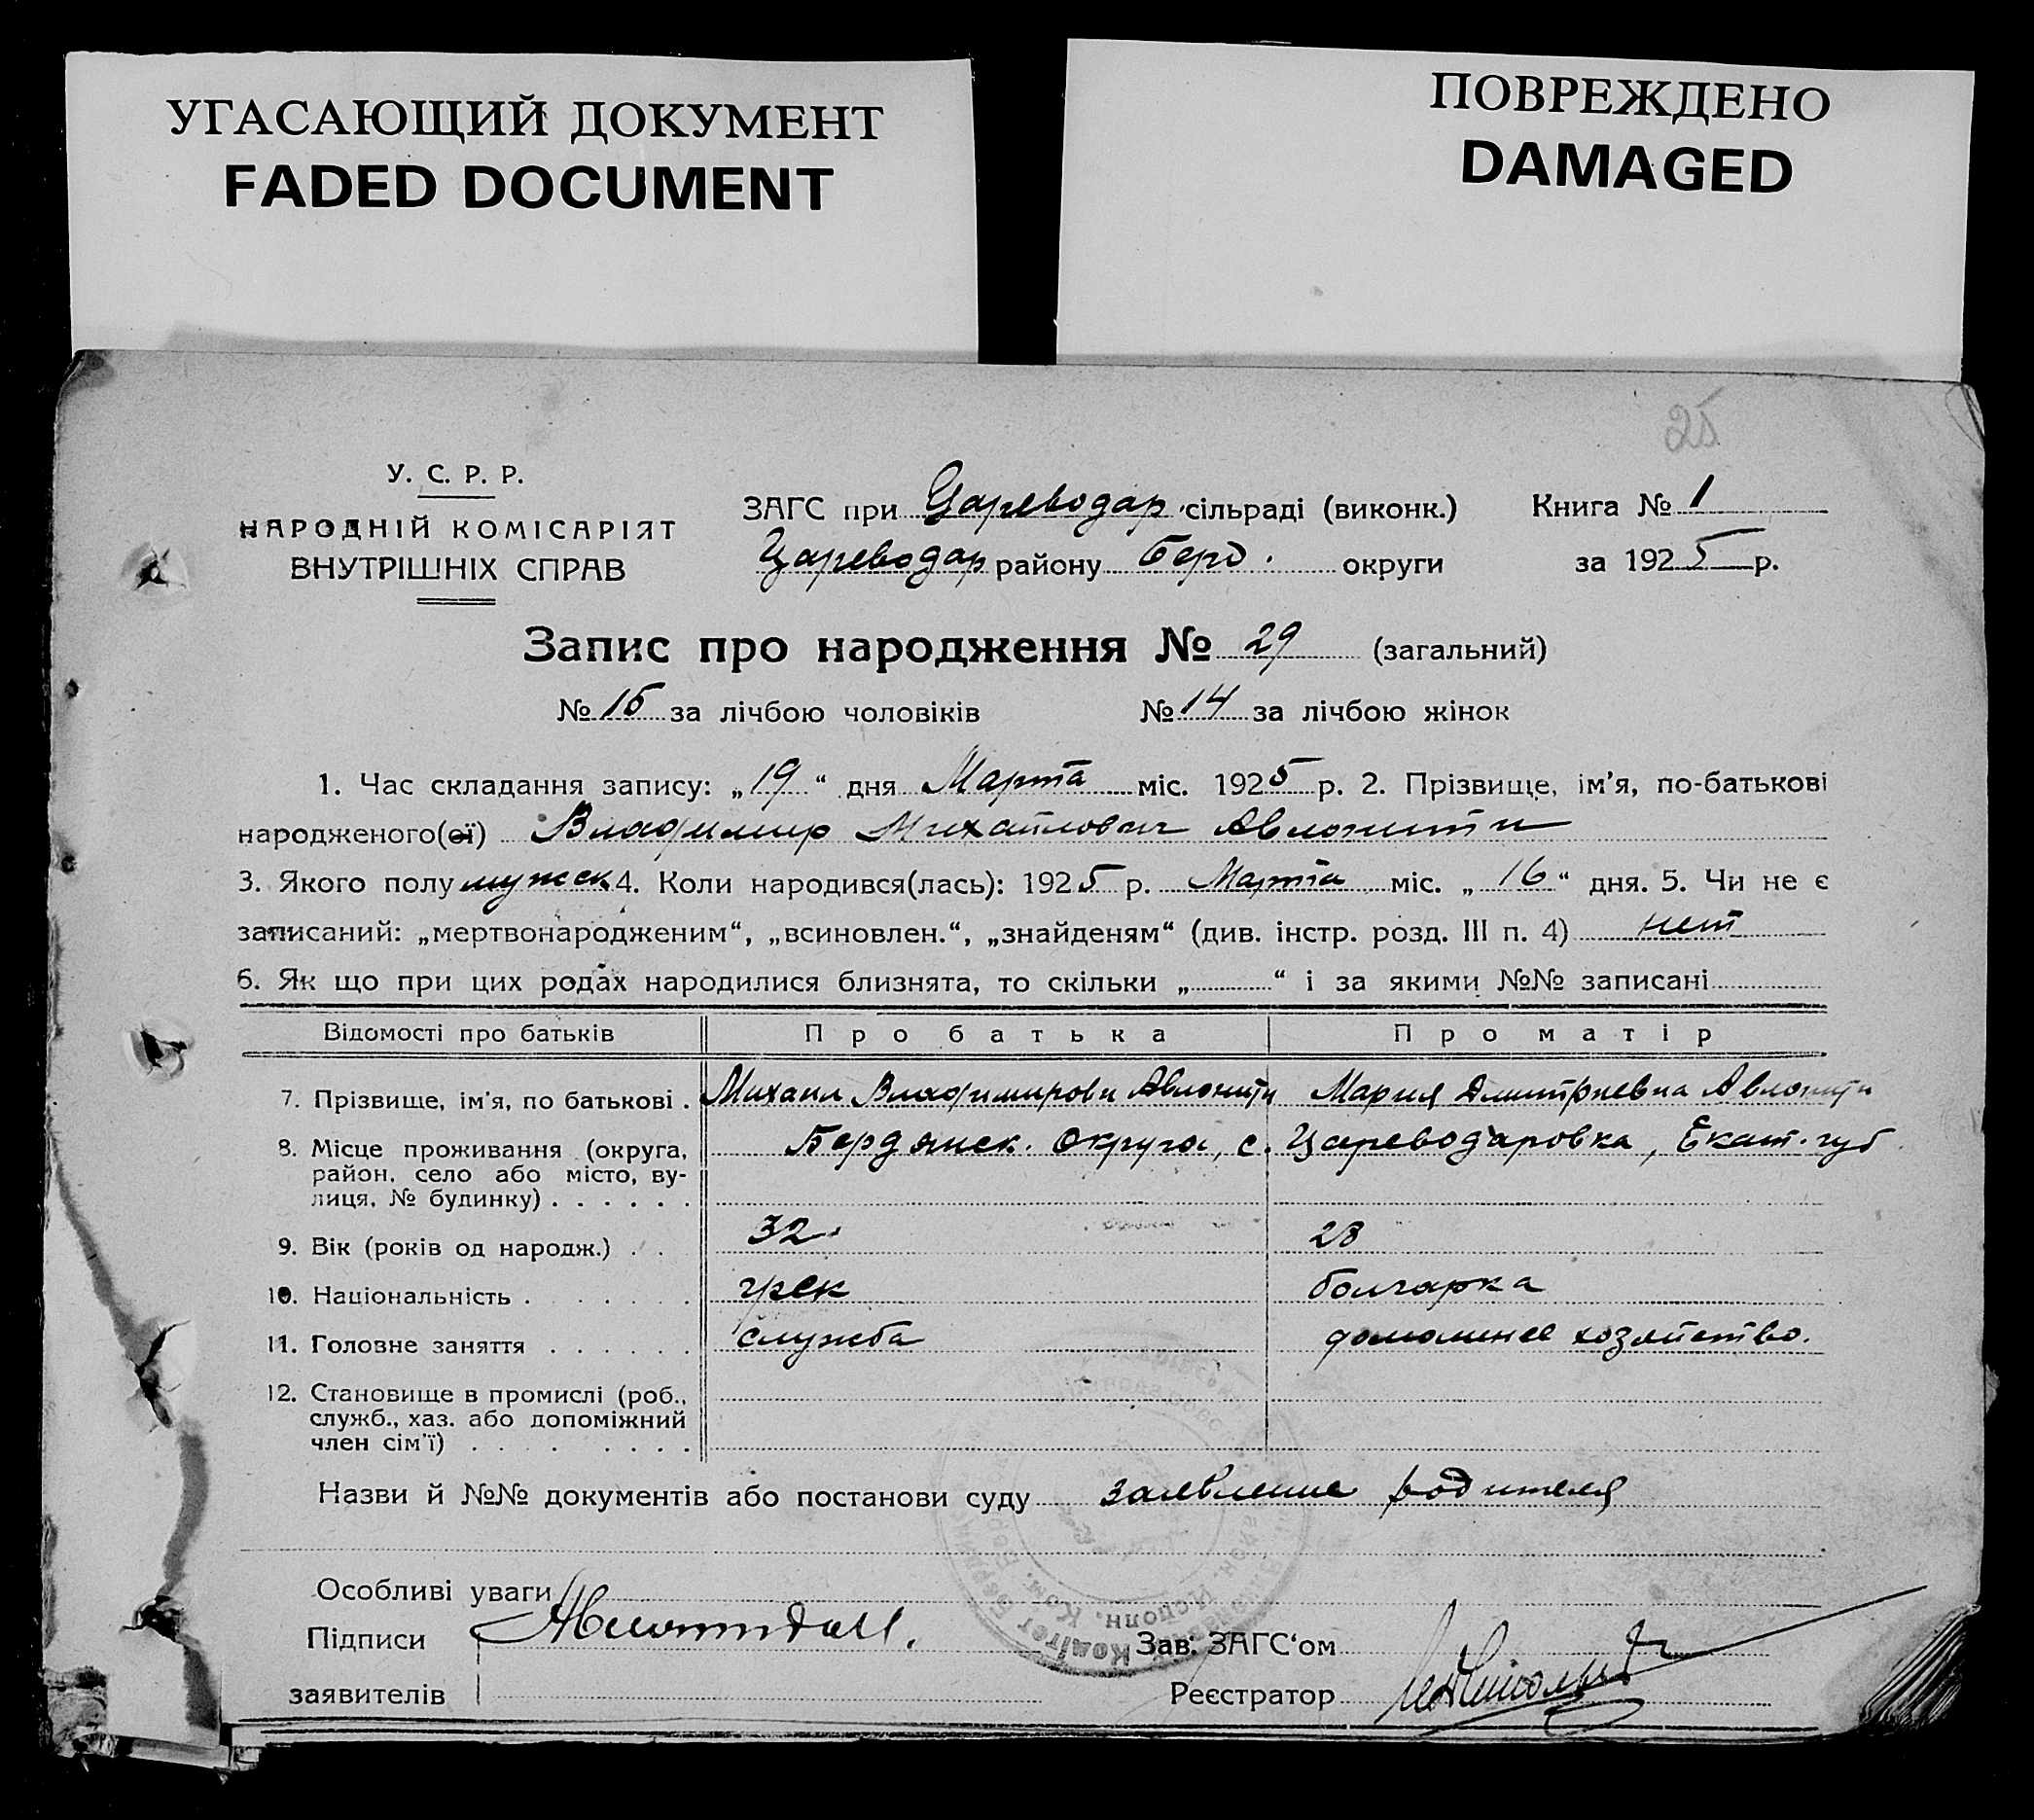 УГАСАЮЩИЙ ДОКУМЕНТ
FADED DOCUMENT
ПОВРЕЖДЕНО
DAMAGED
25
У. С. Р. Р.
НАРОДНІЙ КОМІСАРІЯТ
ВНУТРІШНІХ СПРАВ
ЗАГС при Цареводар сільраді (виконк.)
Цареводар району Берд. округи
Книга № 1
за 1925 р.
Запис про народження № 29 (загальний)
№ 15 за лічбою чоловіків № 14 за лічбою жінок
1. Час складання запису: „19“ дня Марта міс. 1925 р. 2. Прізвище, ім’я, по-батькові
народженого(ої) Владимир Михайлович Авлонити
3. Якого полу мужск 4. Коли народився(лась): 1925 р. Марта міс. „16“ дня. 5. Чи не є
записаний: „мертвонародженим“, „всиновлен.“, „знайденям“ (див. інстр. розд. III п. 4) нет
6. Як що при цих родах народилися близнята, то скільки „ “ і за якими №№ записані
Відомості про батьків Про батька Про матір
7. Прізвище, ім’я, по батькові . Михаил Владимирови Авлонити Мария Дмитриевна Авлонити
8. Місце проживання (округа, Бердянск. округа, с. Цареводаровка, Екат. губ
район, село або місто, ву-
лиця, № будинку) . . . . . .
9. Вік (років од народж.) . . 32 28
10. Національність . . . . . . грек болгарка
11. Головне заняття . . . . . . служба домашнее хозяйство.
12. Становище в промислі (роб.,
служб., хаз. або допоміжний
член сім’ї) . . . . . . . .
Назви й №№ документів або постанови суду заявление родителя
Особливі уваги
Підписи
Зав. ЗАГС‘ом
заявителів
Реєстратор